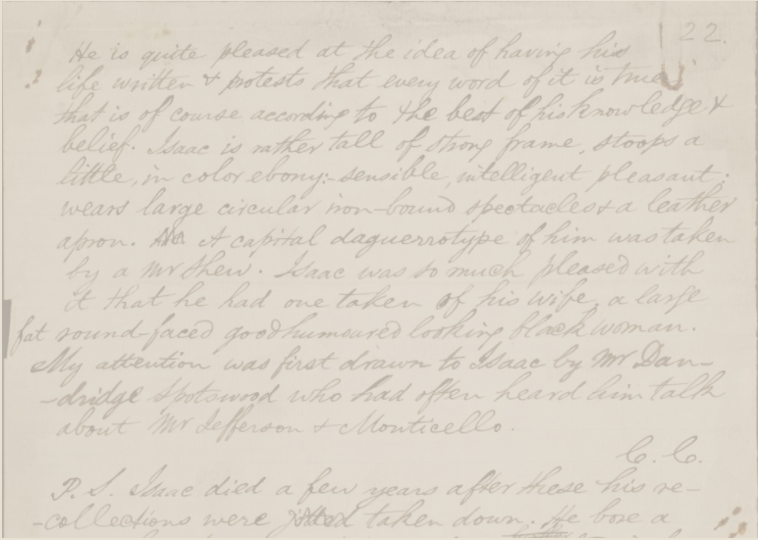 22.
He is quite pleased at the idea of having his
life written & protests that every word of it is true,
that is of course according to the best of his knowledge &
belief. Isaac is rather tall of strong frame, stoops a
little, in color ebony:- sensible, intelligent pleasant:
wears large circular iron-bound spectacles & a leather
apron. A capital daguerrotype of him was taken
by a Mr Shew. Isaac was so much pleased with
it that he had one taken of his wife, a large
fat round-faced goodhumoured looking black woman.
My attention was first drawn to Isaac by Mr Dan-
-dridge Spotswood who had often heard him talk
about Mr Jefferson & Monticello.
C. C.
P. S. Isaac died a few years after these his re-
-collections were taken down. He bore a